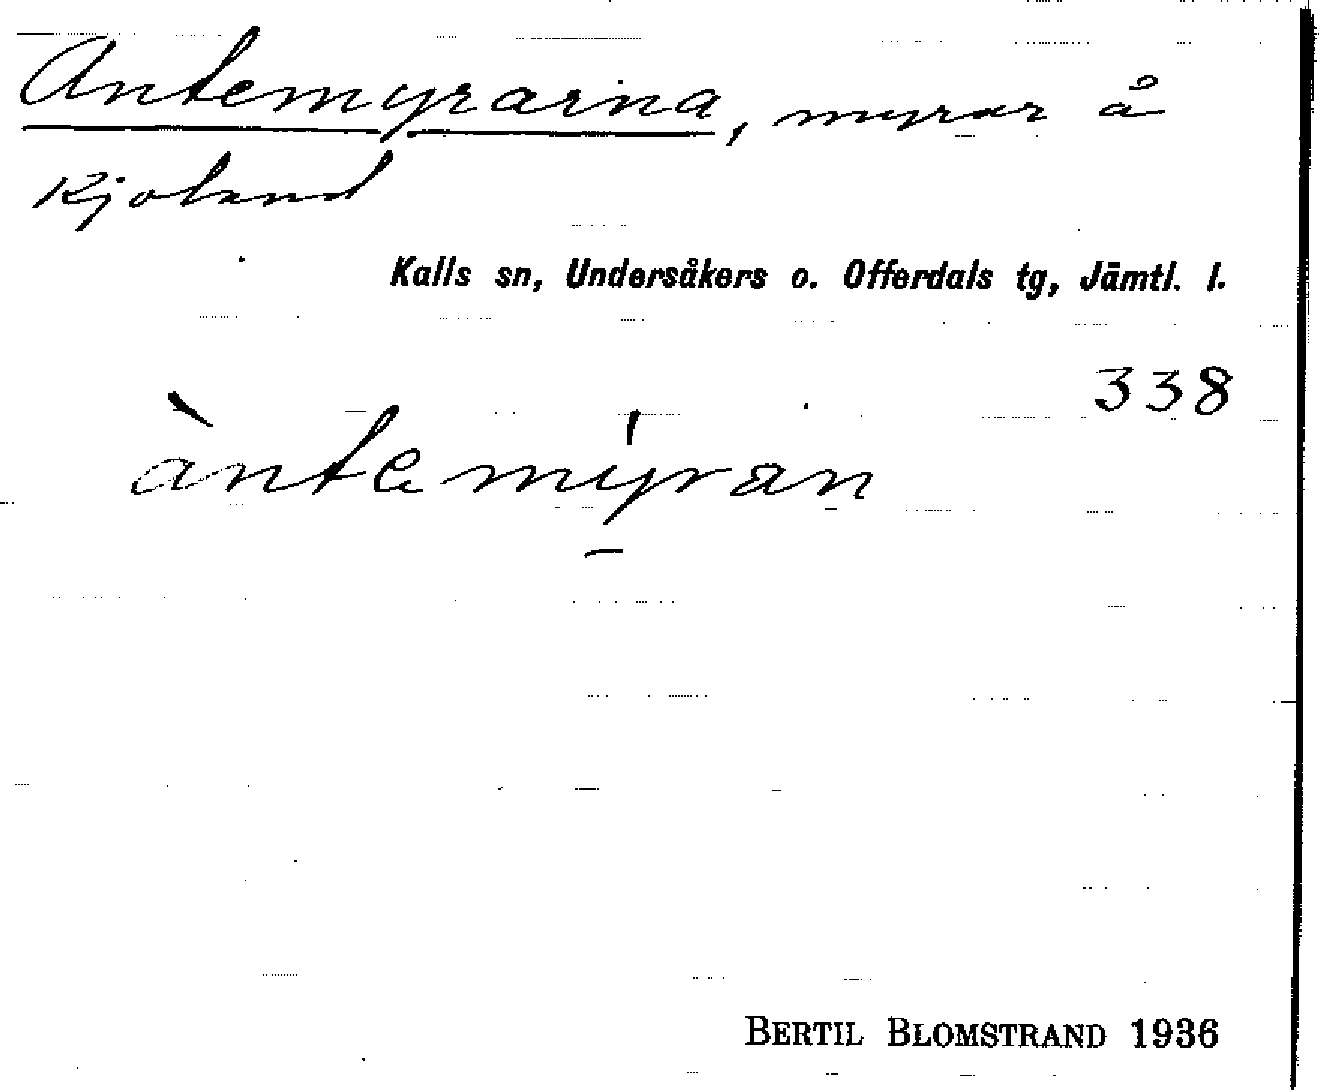 Antemyrarna, myrar å
Kjoland
Kalls sn, Undersåkers o. Offerdals tg, Jämtl. l.
338
àntemýran
BERTIL BLOMSTRAND 1936